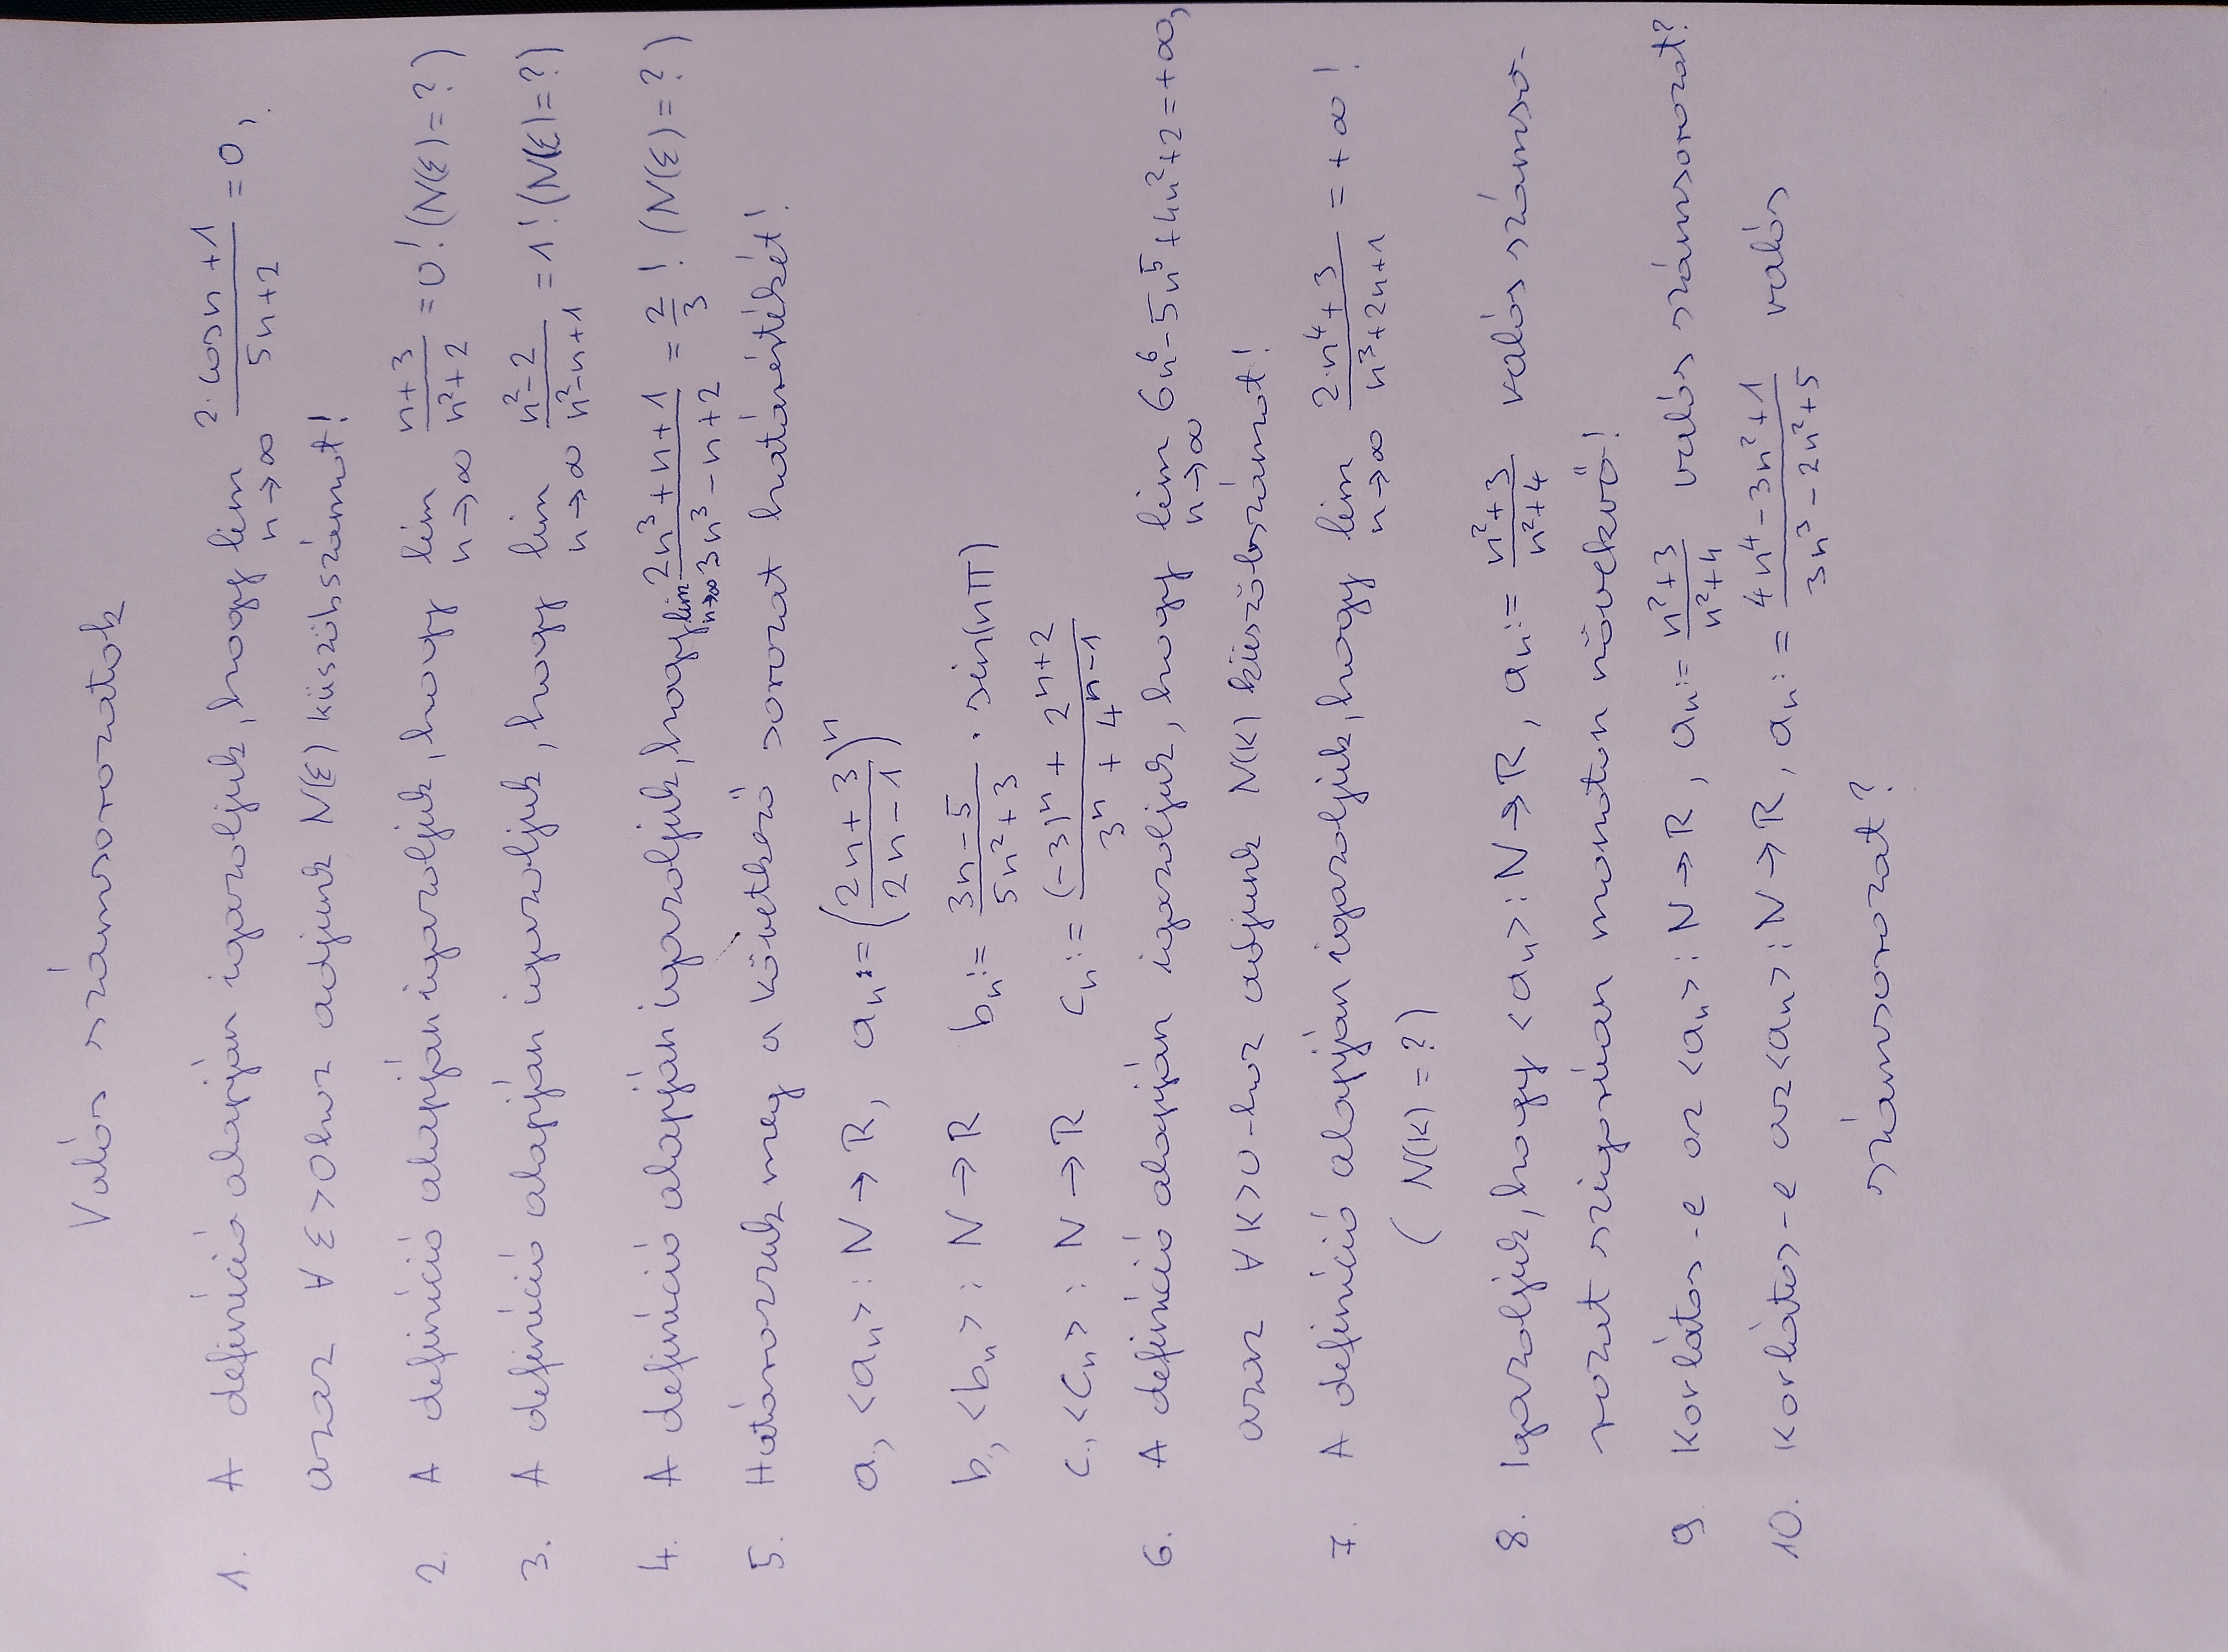 Valós számsorozatok
1. A definíció alapján igazoljuk, hogy lim n→∞ (2·cosn+1)/(5n+2) = 0,
azaz ∀ ε>0hoz adjunk N(ε) küszöbszámot!
2. A definíció alapján igazoljuk, hogy lim n→∞ (n+3)/(n²+2) = 0! (N(ε)=?)
3. A definíció alapján igazoljuk, hogy lim n→∞ (n²-2)/(n²-n+1) = 1! (N(ε)=?)
4. A definíció alapján igazoljuk, hogy lim n→∞ (2n³+n+1)/(3n³-n+2) = 2/3! (N(ε)=?)
5. Határozzuk meg a következő sorozat határértékét!
a., <aₙ>: N→R, aₙ:= ((2n+3)/(2n-1))ⁿ
b., <bₙ>: N→R bₙ:= (3n-5)/(5n²+3) · sin(nπ)
c., <cₙ>: N→R cₙ:= ((-3)ⁿ + 2ⁿ⁺²)/(3ⁿ + 4ⁿ⁻¹)
6. A definíció alapján igazoljuk, hogy lim n→∞ 6n⁶-5n⁵+4n²+2=+∞,
azaz ∀ K>0-hoz adjunk N(K) küszöbszámot!
7. A definíció alapján igazoljuk, hogy lim n→∞ (2·n⁴+3)/(n³+2n+1) = +∞!
(N(K)=?)
8. Igazoljuk, hogy <aₙ>: N→R, aₙ:= (n²+3)/(n²+4) valós számso-
rozat szigorúan monoton növekvő!
9. Korlátos-e az <aₙ>: N→R, aₙ:= (n²+3)/(n²+4) valós számsorozat?
10. Korlátos-e az <aₙ>: N→R, aₙ:= (4n⁴-3n²+1)/(3n³-2n²+5) valós
számsorozat?